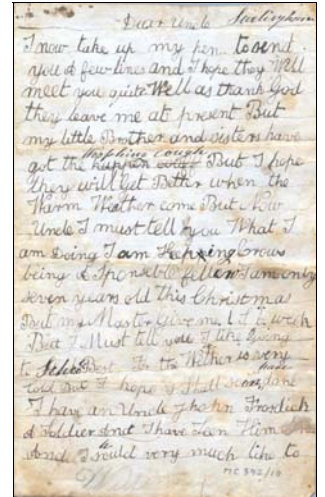 Dear Uncle Starlingham
I now take up my pen to send
you a few lines and I hope they Will
meet you quite Well as thank God
they leave me at present But
my little Brother and sisters have
Hooping Cough
got the But I hope
they will Get Bettr when the
Warm Weather come But Now
Uncle I must tell you What I
am Doing I am Keeping Crows
being a Sponsble fellow I am only
seven years old this Christmas
But my Master Give me 1 s a week
But I Must tell you I like Going
to School Best. For the Wether is very
cold But I hope I shall soon done
I have an Uncle
a Soldier And I have Seen Him
And I would very much like to
MC 392/10